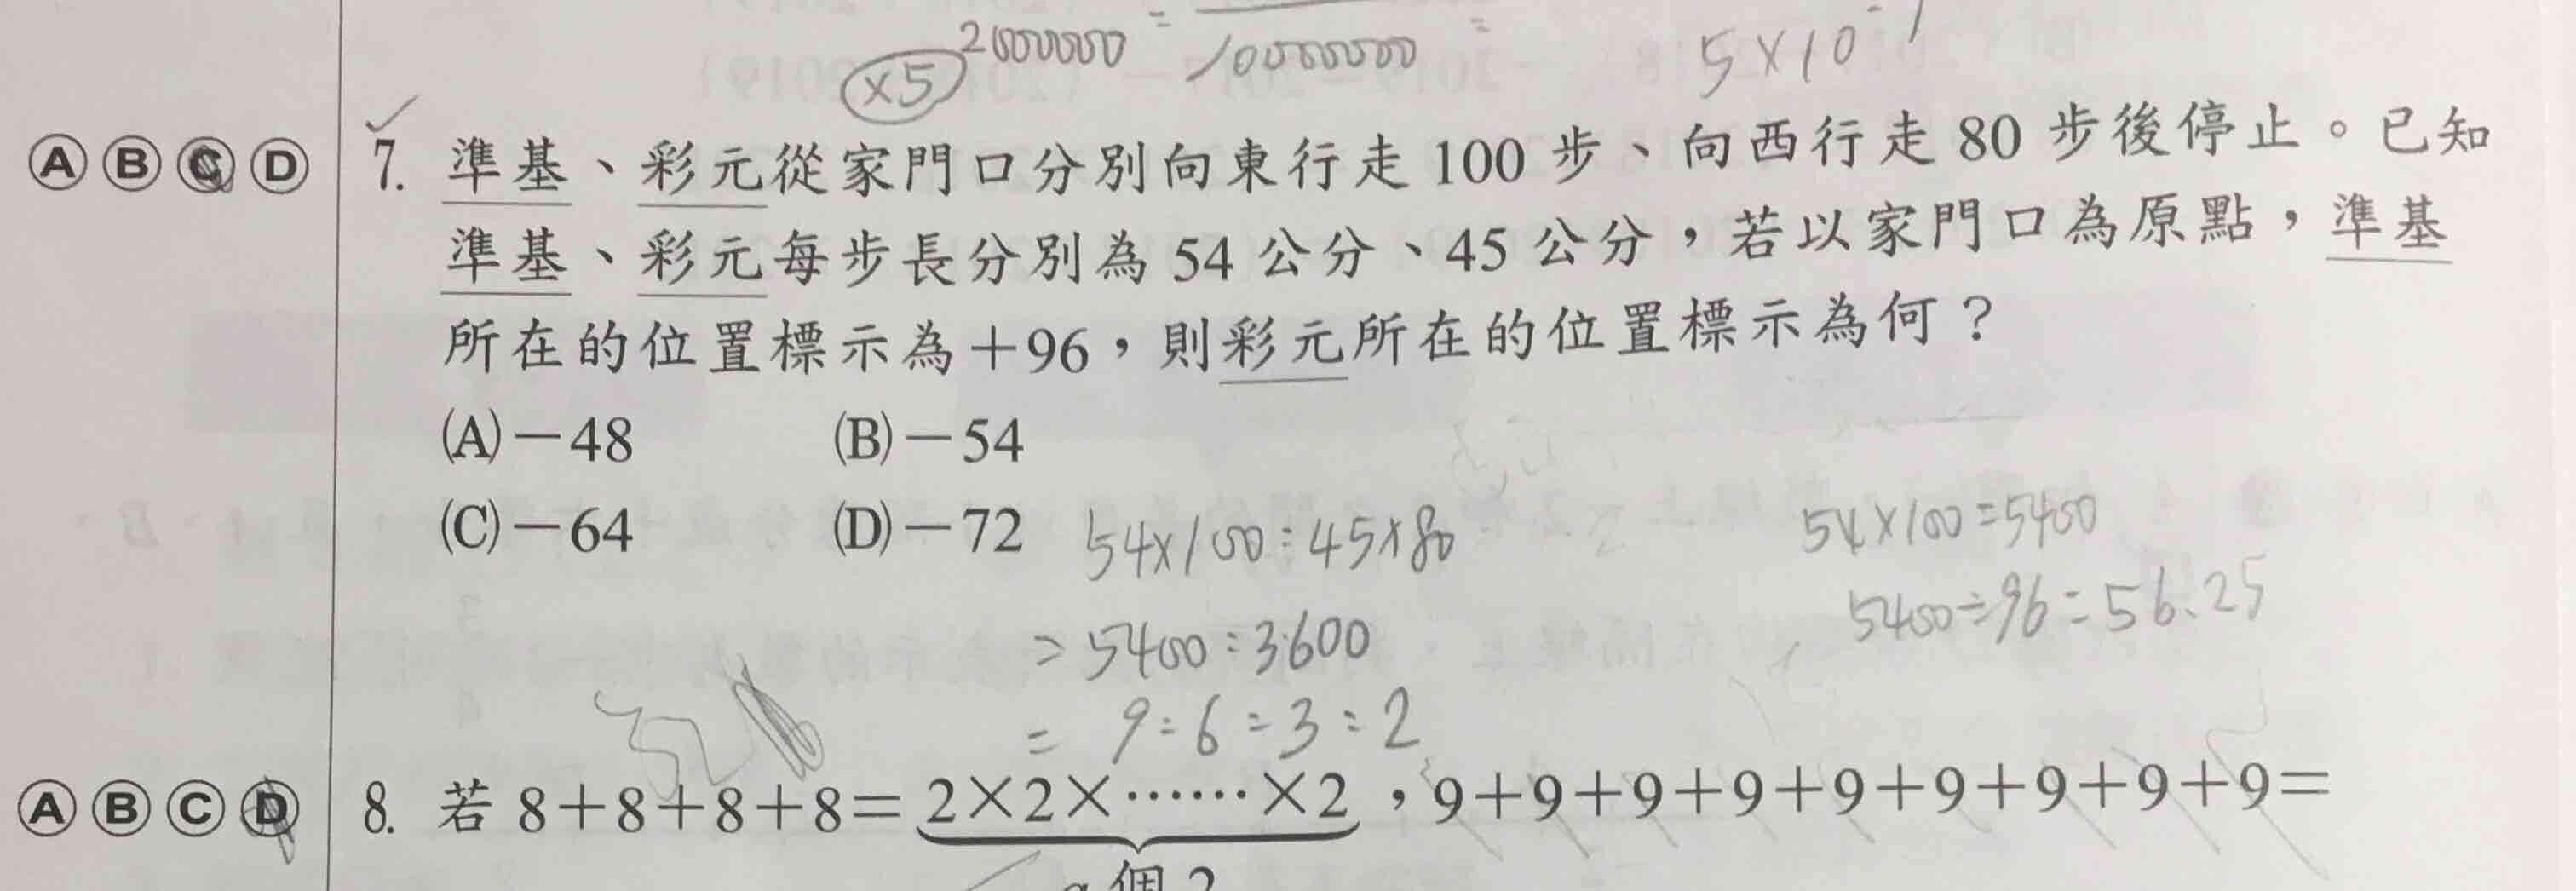 ×5 2000000 = 10000000 =
5×10⁻¹
Ⓐ Ⓑ Ⓒ Ⓓ 7. 準基、彩元從家門口分別向東行走 100 步、向西行走 80 步後停止。已知
準基、彩元每步長分別為 54 公分、45 公分，若以家門口為原點，準基
所在的位置標示為+96，則彩元所在的位置標示為何？
(A)－48 (B)－54
(C)－64 (D)－72
54×100:45×80
=5400:3600
=9:6=3:2
54×100=5400
5400÷96=56.25
Ⓐ Ⓑ Ⓒ Ⓓ 8. 若 8+8+8+8=2×2×……×2，9+9+9+9+9+9+9+9+9=
個 2